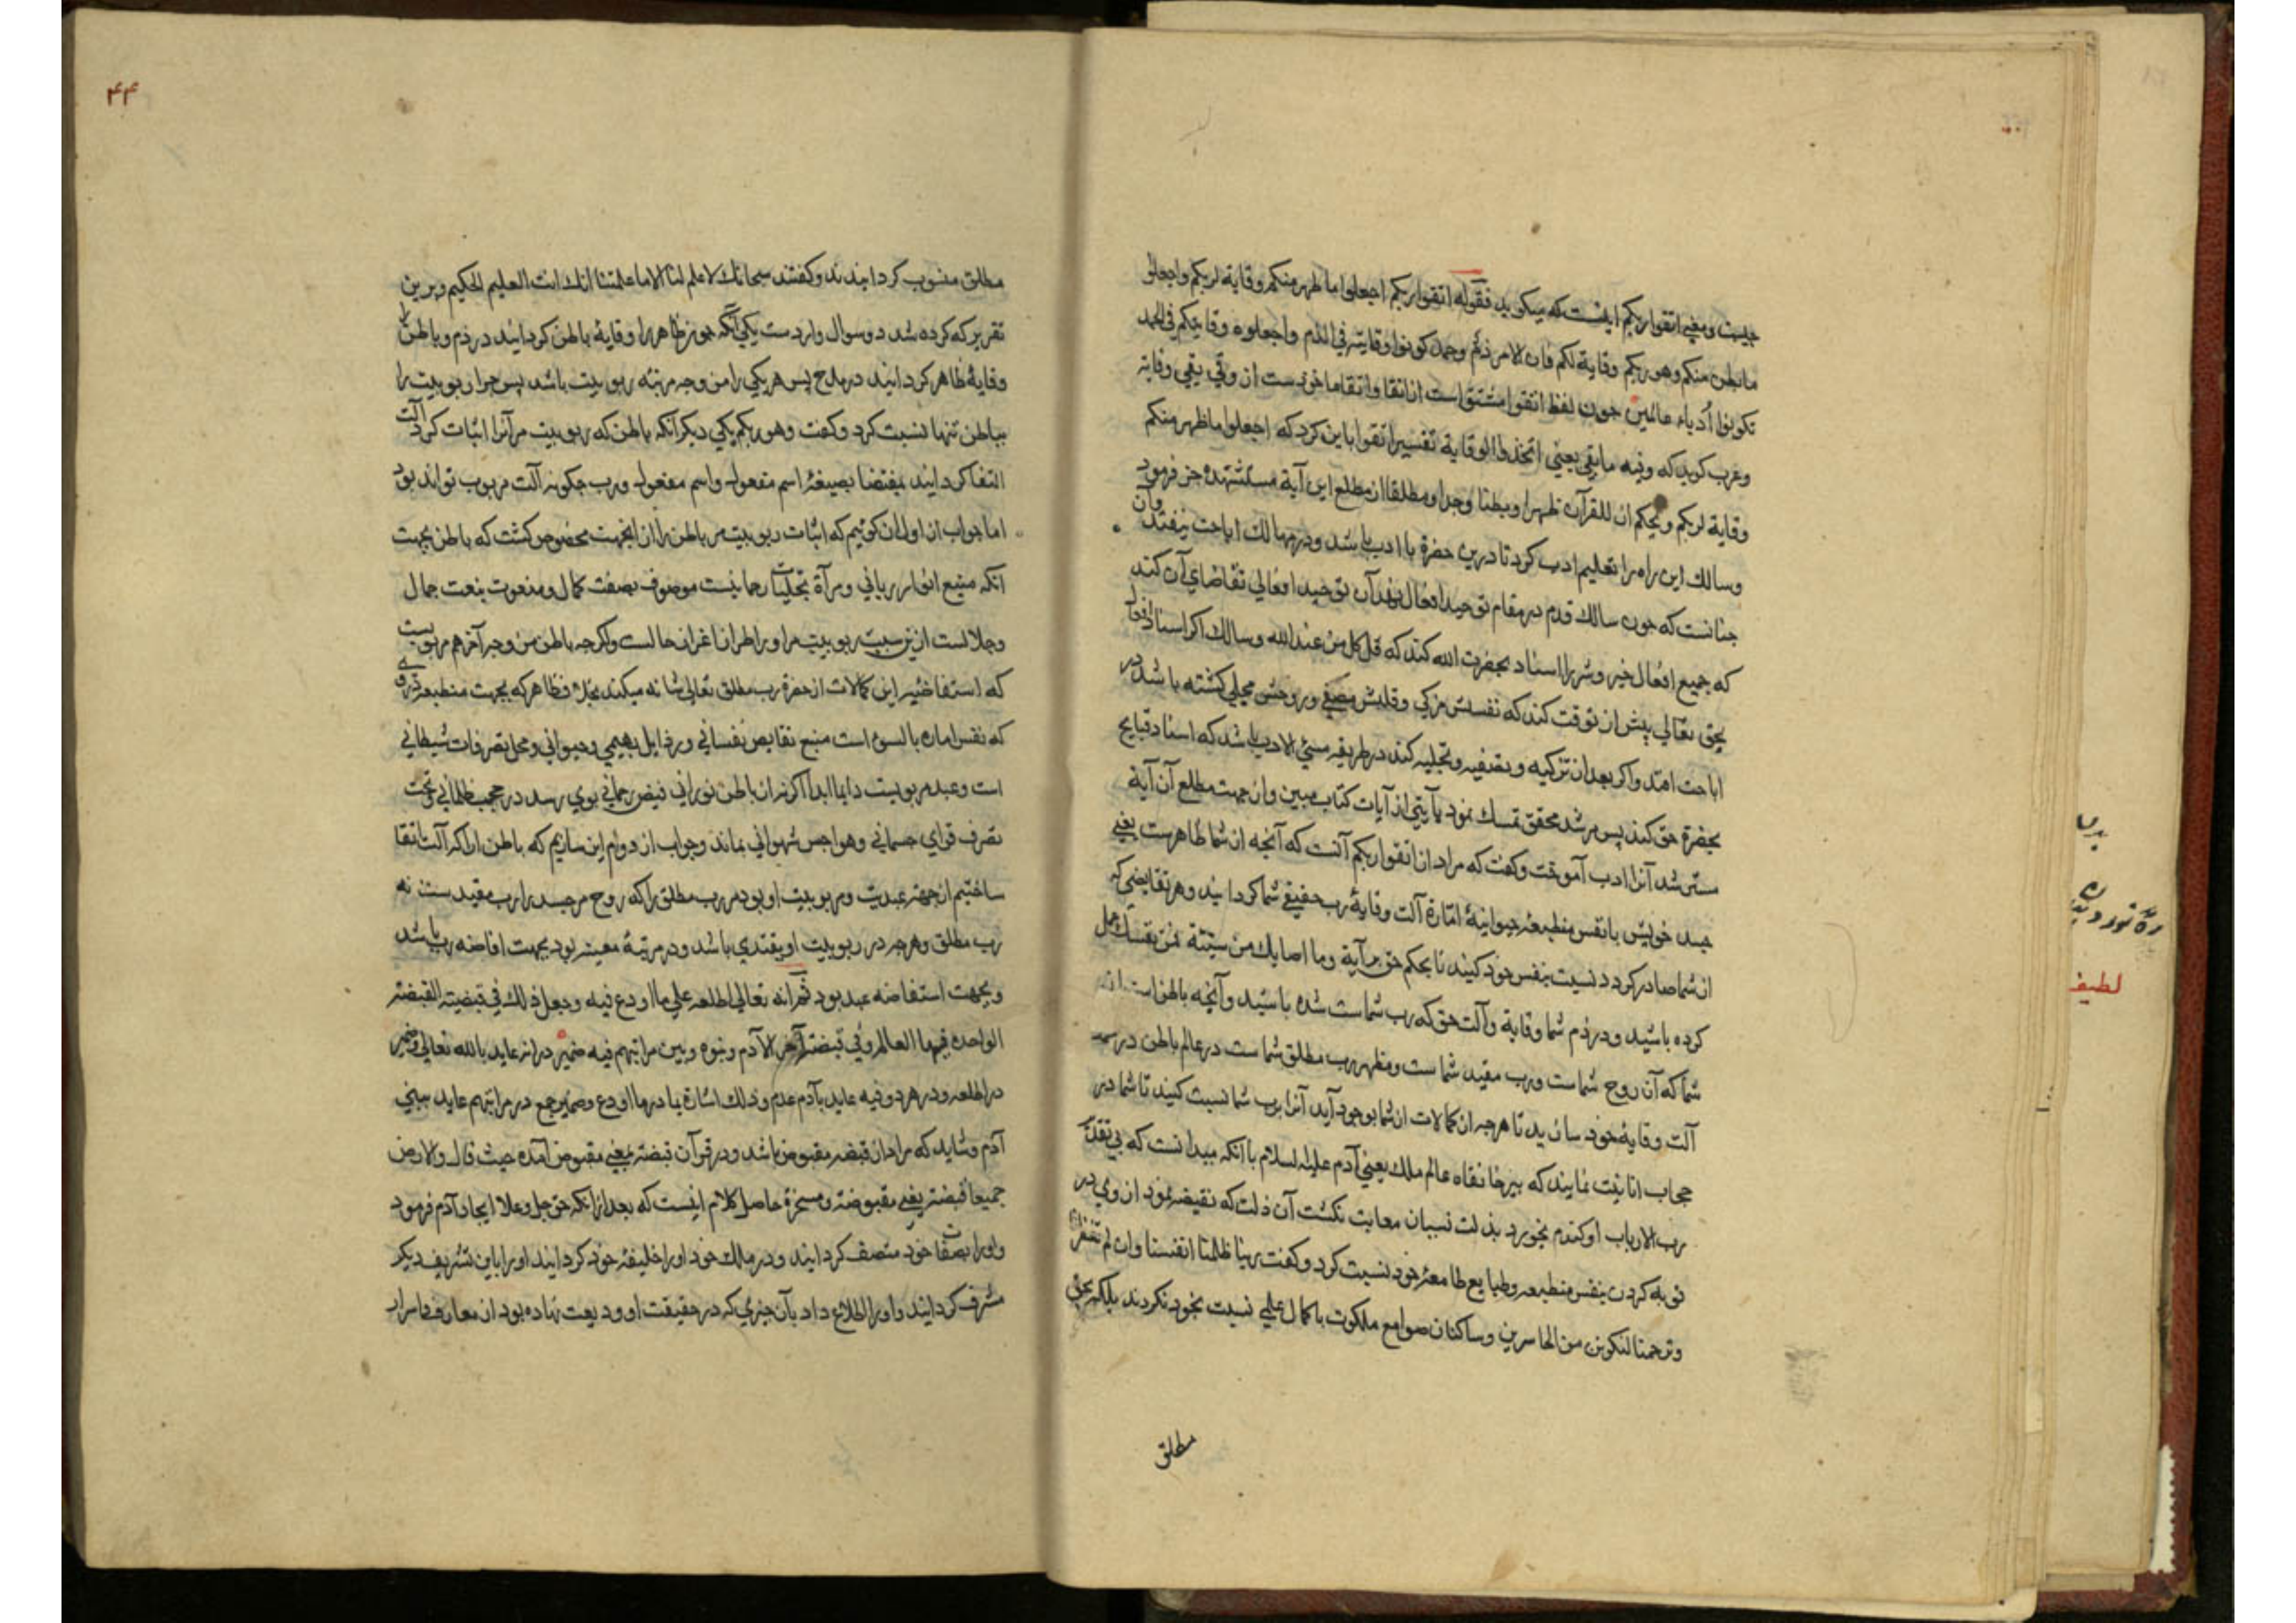 چیست و معنی اتقوا ربکم اینست که میکوید فقوله اتقوا ربکم اجعلوا ما ظهر منکم وقایة لربکم واجعلوا
ما بطن منکم وهو ربکم وقایة لکم فان الامر ذم وحمد کونوا وقایته فی الذم واجعلوه وقایتکم فی الحمد
تکونوا أدباء عالمین چون لفظ اتقوا مشتق است از اتقا واتقا ماخوذست از وقی یقی وقایة
وعرب کوید که وقیه مایقی یعنی اتخذوا الوقایة تفسیر اتقوا باین کرد که اجعلوا ما ظهر منکم
وقایة لربکم وبحکم ان للقرآن ظهرا وبطنا وحدا ومطلعا از مطلع این آیة مستشهده خبر فرمود
وسالك این راه را تعلیم ادب کرد تا درین حضرة با ادب باشد ودر مهالك اباحت نیفتد وآن
چنانست که چون سالك قدم در مقام توحید افعال نهد آن توحید افعالی تقاضای آن کند
که جمیع افعال خیر وشر را اسناد بحضرت الله کند که قل کل من عند الله وسالك اکر اسناد افعال
بحق تعالی پیش از توقت کند که نفسش مزکی وقلبش مصفی وروحش مجلی کشته باشد در
اباحت افتد واکر بعد از تزکیه وتصفیه وتجلیه کند در طریقه مسئ الادب باشد که اسناد قبایح
بحضرة حق کند پس مرشد محقق تمسك نمود بآیتی از آیات کتاب مبین واز جهت مطلع آن آیة
مسترشد آنرا ادب آموخت وکفت که مراد از اتقوا ربکم آنست که آنچه از شما ظاهرست یعنی
جسد خویش با نفس منطبعه حیوانیة امارة آلت وقایة رب حقیقی شما کردانید وهر نقایصی که
از شما صادر کردد نسبت بنفس خود کنید تا بحکم حق برآیة وما اصابك من سیئة فمن نفسك عمل
کرده باشید ودر ذم شما وقایة وآلت حق که رب شماست شده باشید وآنچه باطن است از
شما که آن روح شماست ورب مقید شماست ومظهر رب مطلق شماست در عالم باطن در
آلت وقایة خود سازید تا هرچه از کمالات از شما بوجود آید آنرا برب شما نسبت کنید تا شما در
حجاب انانیت نمایند که پیر خانقاه عالم ملك یعنی آدم علیه السلام با آنکه میدانست که بی تقدیر
رب الارباب او کندم نخورد بذلت نسیان معاتب نکشت آن ذلت که نقیصه نمود از وی در
توبه کردن بنفس منطبعه وطبایع طامعۀ خود نسبت کرد وکفت ربنا ظلمنا انفسنا وان لم تغفر لنا
وترحمنا لنکونن من الخاسرین وساکنان صوامع ملکوت با کمال علمی نسبت بخود نکردند بلکه بحق
مطلق
۴۴
مطلق منسوب کردانیدند وکفتند سبحانك لا علم لنا الا ما علمتنا انك انت العلیم الحکیم وبرین
تقریر که کرده شد دو سوال واردست یکی آنکه چون ظاهر را وقایة باطن کردانید در ذم وباطن را
وقایة ظاهر کردانید در مدح پس هر یکی را من وجه مرتبه ربوبیت باشد پس چرا ربوبیت را
بباطن تنها نسبت کرد وکفت وهو ربکم یکی دیکر آنکه باطن که ربوبیت مر آنرا اثبات کرد آلت
اتقا کردانید بمقتضا بصیغۀ اسم مفعول واسم مفعول ورب چکونه آلت مربوب تواند بود
اما جواب از اول آن کوییم که اثبات ربوبیت مر باطن را از انجهت مخصوص کشت که باطن بجهت
انکه منبع انوار ربانی ومرآة تجلیات رحمانیست موصوف بصفت کمال ومنعوت بنعت جمال
وجلالست ازین سبب ربوبیت مر او را اطران اغران حالست واکرچه باطن من وجه آخر هم مربوبست
که استفاضه این کمالات از حضرة رب مطلق تعالی شانه میکند بخلاف ظاهر که بجهت منطبعه
که نفس اماره بالسوء است منبع نقایص نفسانی ورذایل بهیمی وحیوانی ومحل تصرفات شیطانی
است وعبد مربوبست دایما ابدا اکر نه از باطن نورانی فیض رحمانی بوی رسد در حجب ظلمانی وتحت
تصرف قوای جسمانی وهواجس شهوانی بماند وجواب از دوم این سازیم که باطن را که آلت اتقا
ساختیم از جهة عبدیت ومربوبیت او بود مر رب مطلق را که روح مر جسد را رب مقید ست نه
رب مطلق وهرچه در ربوبیت او یقتدی باشد ودر مرتبة معینه بود بجهت افاضه رب باشد
وبجهت استفاضه عبد بود ثم انه تعالی اطلعه علی ما اودع فیه وجعل ذلك فی قبضتیه القبضة
الواحدة فیها العالم وفی قبضة الآخر الآدم وبنوه وبین مراتبهم فیه ضمیر در انه عاید بالله تعالی وضمیر
در اطلعه ودر هر دو فیه عاید بآدم علم وذلك اشارة با در ما اودع وضمیر جمع در مراتبهم عاید ببنی
آدم وشاید که مراد از قبضه مقبوض باشد ودر قرآن قبضة بمعنی مقبوض آمده حیث قال والارض
جمیعا قبضته یعنی مقبوضته ومسخرة حاصل کلام اینست که بعد از انکه حق جل وعلا ایجاد آدم فرمود
واورا بصفات خود متصف کردانید ودر ملك خود اورا خلیفۀ خود کردانید اورا باین تشریف دیکر
مشرف کردانید واورا اطلاع داد بآن چیزی که در حقیقت او ودیعت نهاده بود از معارف واسرار
لطیفه